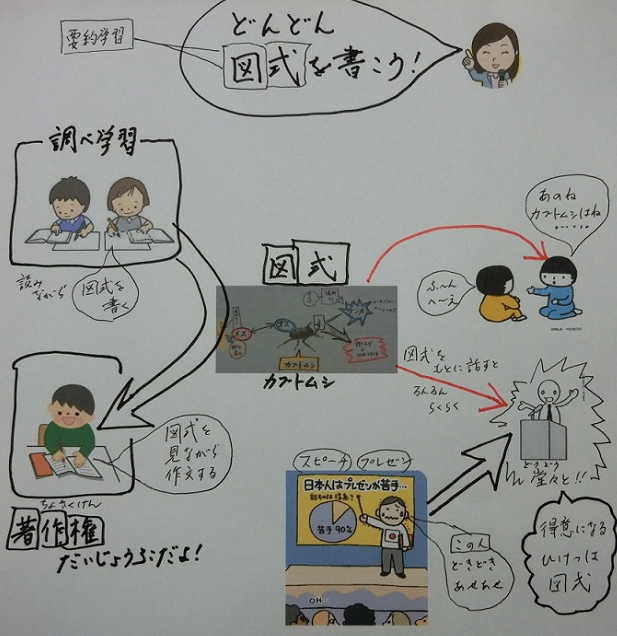 要約学習
どんどん
図式を書こう！
調べ学習
読み
ながら
図式を
書く
図式を
見ながら
作文する
ちょさくけん
著作権
だいじょうぶだよ！
図式
オス
カブトムシ
カブトムシ
あのね
カブトムシはね
ふーん
へーえ
図式を
もとに話すと
るんるん
らくらく
どうどう
堂々と！！
スピーチ プレゼン
日本人はプレゼンが苦手…
苦手90%
OH…
この人
どきどき
あせあせ
得意になる
ひけつは
図式